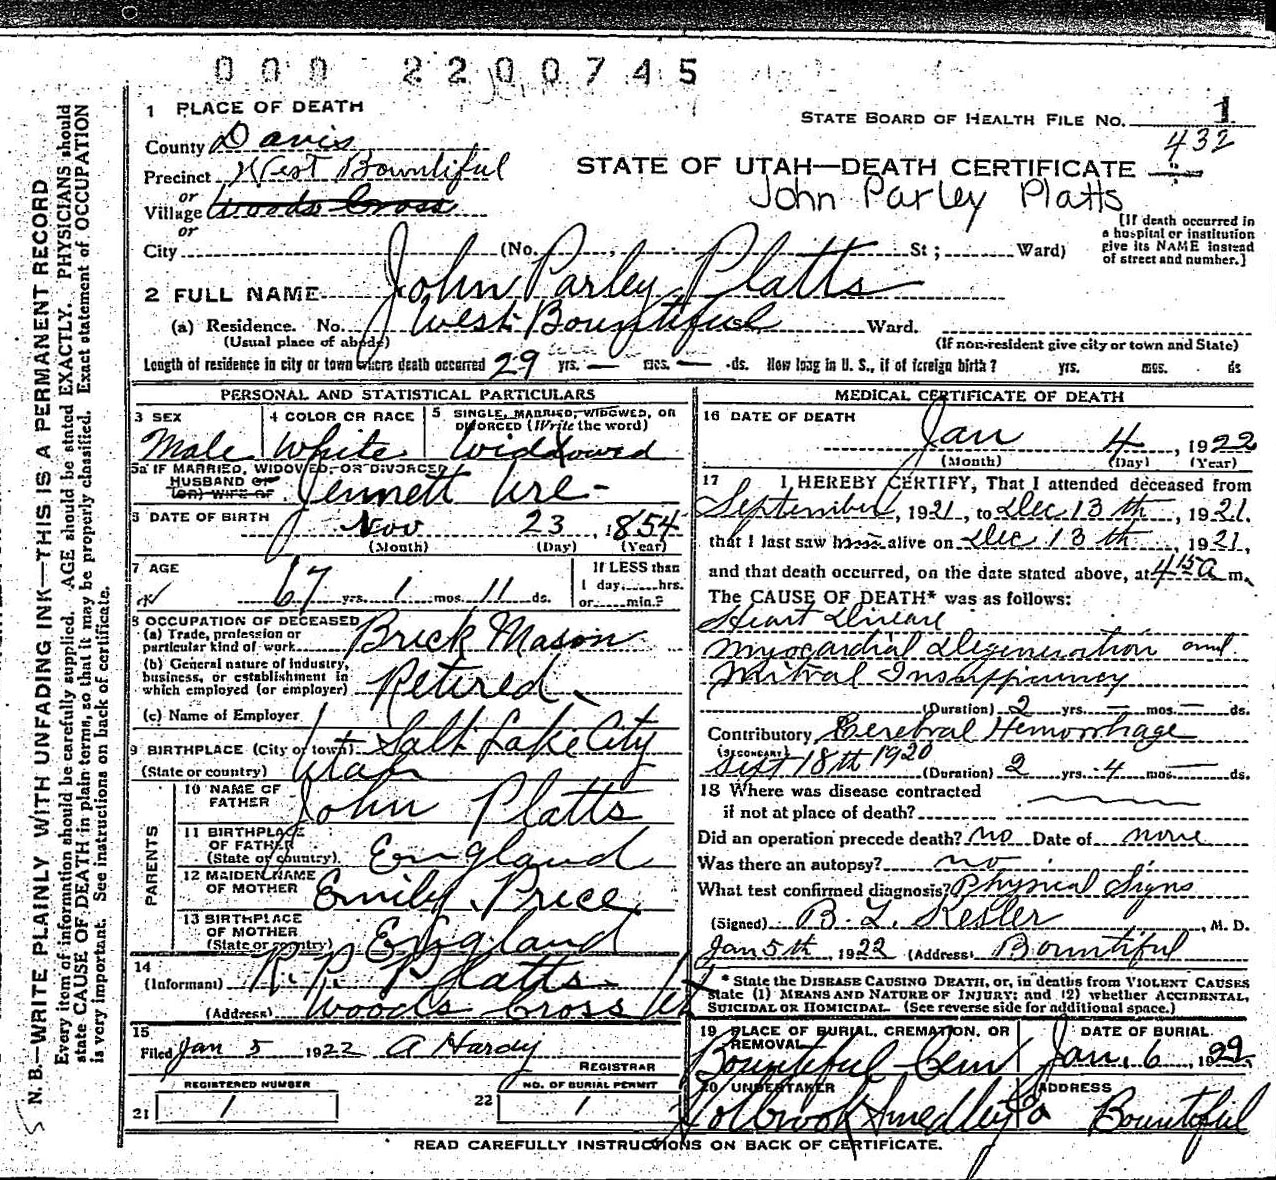 000 2200745
1 PLACE OF DEATH
STATE BOARD OF HEALTH FILE NO. 1
432
County Davis
Precinct West Bountiful
STATE OF UTAH—DEATH CERTIFICATE
John Parley Platts
or
Village Woods Cross
or
[If death occurred in
a hospital or institution
give its NAME instead
of street and number.]
City (No. St; Ward)
2 FULL NAME John Parley Platts
(a) Residence. No. West Bountiful Ward.
(Usual place of abode) (If non-resident give city or town and State)
Length of residence in city or town where death occurred 29 yrs. — mos. — ds. How long in U. S., if of foreign birth? yrs. mos. ds
PERSONAL AND STATISTICAL PARTICULARS
3 SEX
Male
4 COLOR OR RACE
White
5 SINGLE, MARRIED, WIDOWED, OR
DIVORCED (Write the word)
Widowed
5a IF MARRIED, WIDOWED, OR DIVORCED
HUSBAND OF
(OR) WIFE OF Jennett Ure -
6 DATE OF BIRTH Nov 23, 1854
(Month) (Day) (Year)
7 AGE
67 yrs. 1 mos. 11 ds.
If LESS than
1 day, hrs.
or min.?
8 OCCUPATION OF DECEASED
(a) Trade, profession or
particular kind of work Brick Mason
(b) General nature of industry,
business, or establishment in
which employed (or employer) Retired
(c) Name of Employer
9 BIRTHPLACE (City or town) Salt Lake City
(State or country) Utah
PARENTS
10 NAME OF
FATHER John Platts
11 BIRTHPLACE
OF FATHER
(State or country) England
12 MAIDEN NAME
OF MOTHER Emily Price
13 BIRTHPLACE
OF MOTHER
(State or country) England
14
(Informant) R. P. Platts
(Address) Woods Cross Ut
15
Filed Jan 5 1922 A Hardy
REGISTRAR
REGISTERED NUMBER
21 1
NO. OF BURIAL PERMIT
22 1
MEDICAL CERTIFICATE OF DEATH
16 DATE OF DEATH
Jan 4, 1922
(Month) (Day) (Year)
17 I HEREBY CERTIFY, That I attended deceased from
September, 1921, to Dec 13th, 1921.
that I last saw him alive on Dec 13th, 1921,
and that death occurred, on the date stated above, at 4 15 a m.
The CAUSE OF DEATH* was as follows:
Heart Disease
Myocardial Degeneration and
Mitral Insufficiency
(Duration) 2 yrs. — mos. — ds.
Contributory Cerebral Hemorrhage
(SECONDARY)
Sept 18th 1920 (Duration) 2 yrs. 4 mos. — ds.
18 Where was disease contracted
if not at place of death?
Did an operation precede death? no Date of none
Was there an autopsy? no
What test confirmed diagnosis? Physical Signs
(Signed) B. L. Kesler, M. D.
Jan 5th, 1922 (Address) Bountiful
* State the DISEASE CAUSING DEATH, or, in deaths from VIOLENT CAUSES
state (1) MEANS AND NATURE OF INJURY; and (2) whether ACCIDENTAL,
SUICIDAL OR HOMICIDAL. (See reverse side for additional space.)
19 PLACE OF BURIAL, CREMATION, OR
REMOVAL
Bountiful Cem
DATE OF BURIAL
Jan. 6, 1922
20 UNDERTAKER
Holbrook Smedley Co
ADDRESS
Bountiful
READ CAREFULLY INSTRUCTIONS ON BACK OF CERTIFICATE.
N. B.—WRITE PLAINLY WITH UNFADING INK—THIS IS A PERMANENT RECORD
Every item of information should be carefully supplied. AGE should be stated EXACTLY. PHYSICIANS should
state CAUSE OF DEATH in plain terms, so that it may be properly classified. Exact statement of OCCUPATION
is very important. See instructions on back of certificate.